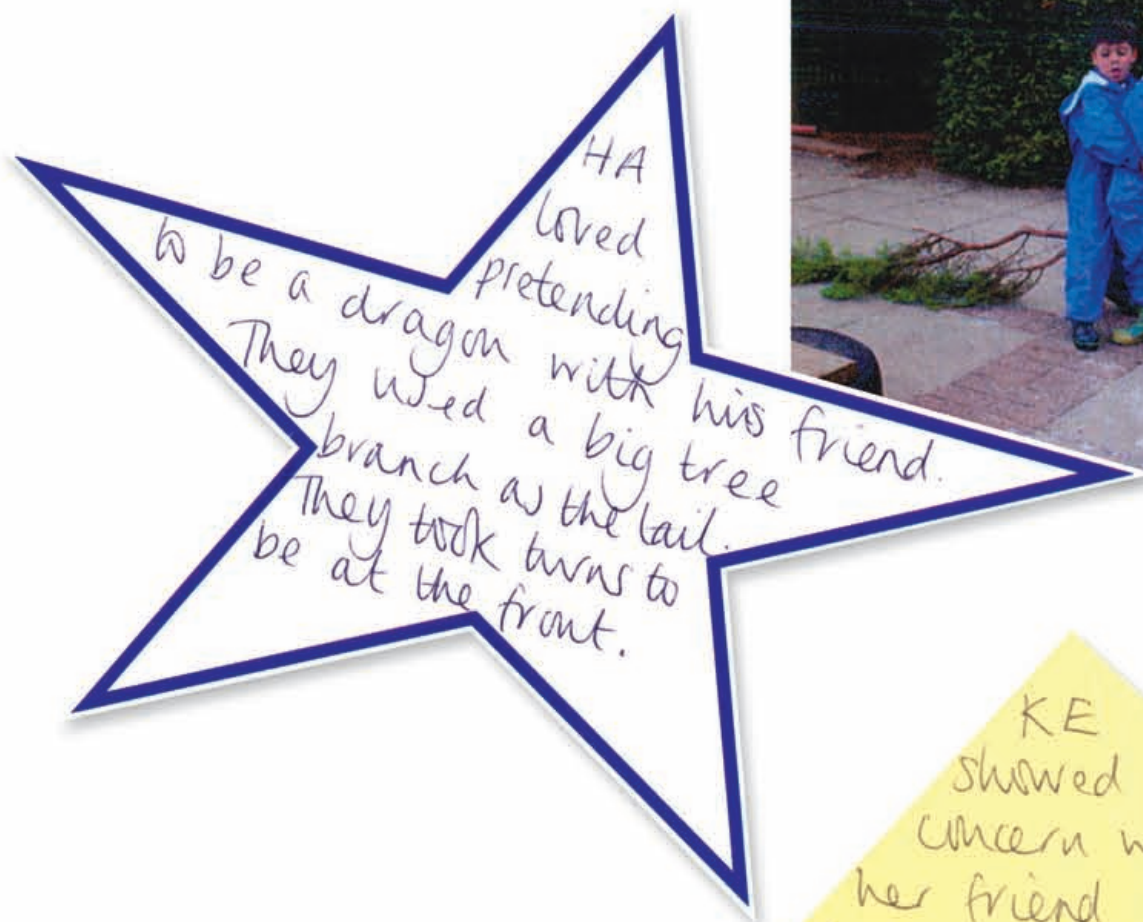 HA
loved
pretending
to be a dragon with his friend.
They used a big tree
branch as the tail.
They took turns to
be at the front.
KE
showed
concern
her friend